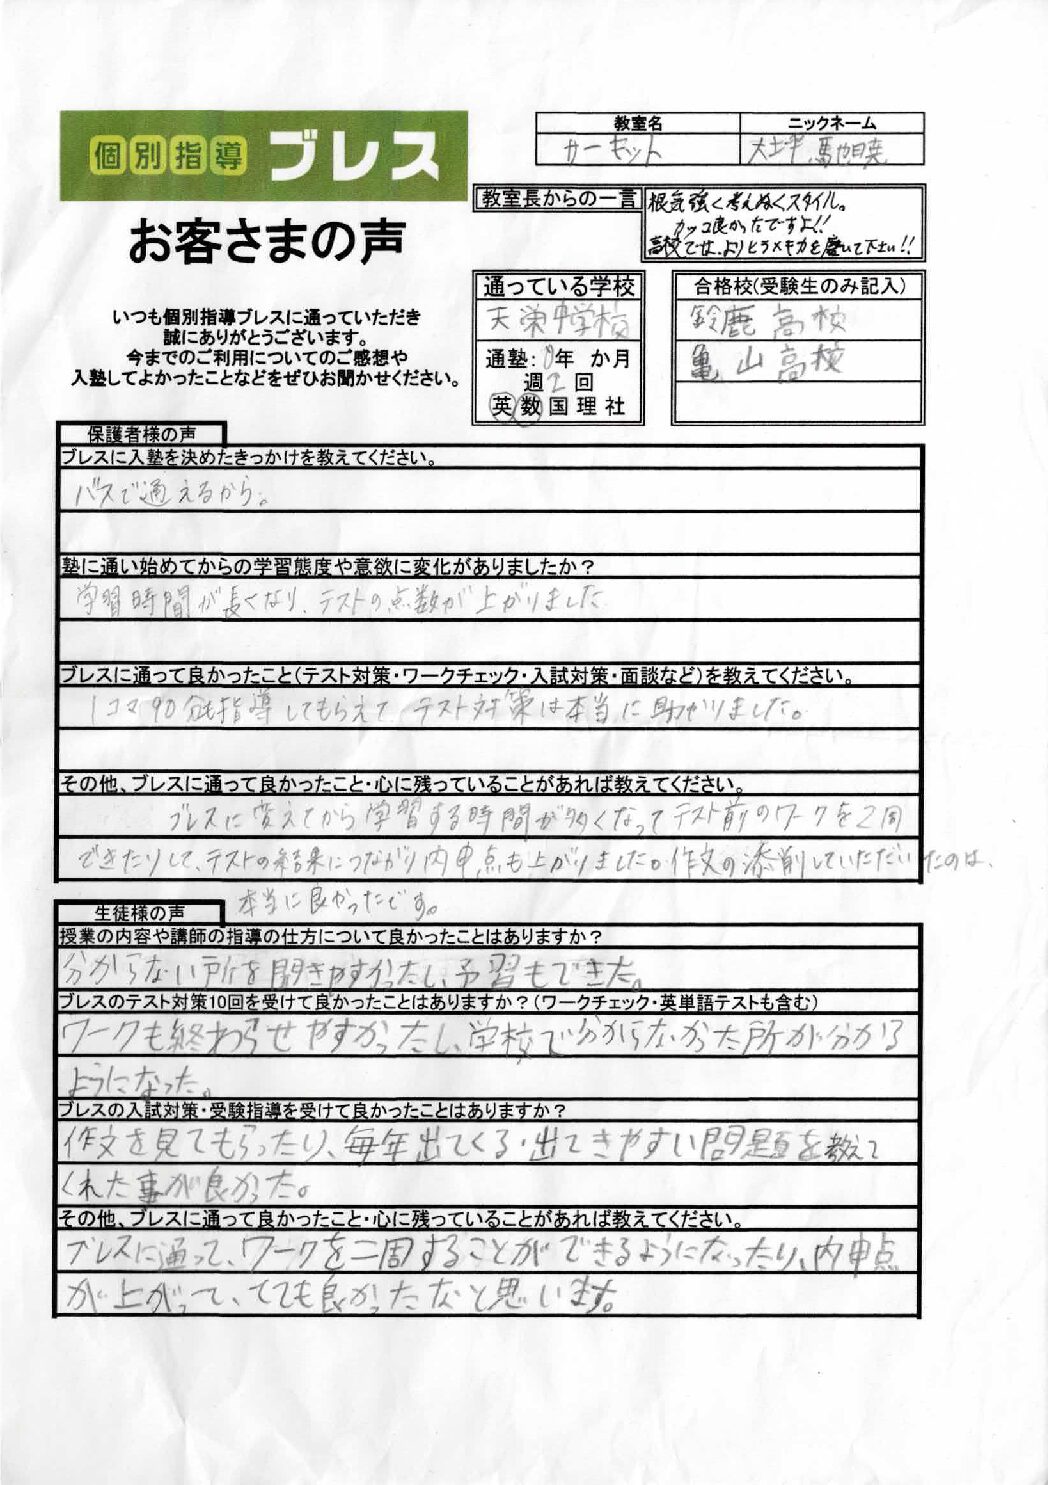 個別指導 ブレス
お客さまの声
いつも個別指導ブレスに通っていただき
誠にありがとうございます。
今までのご利用についてのご感想や
入塾してよかったことなどをぜひお聞かせください。
教室名
サーキット
ニックネーム
教室長からの一言
根気強く考えぬくスタイル。
カッコ良かったですよ!!
高校では、よりヒラメキ力を磨いて下さい!!
通っている学校
天栄中学校
通塾: 年 か月
週2回
英数国理社
合格校(受験生のみ記入)
鈴鹿高校
亀山高校
保護者様の声
ブレスに入塾を決めたきっかけを教えてください。
バスで通えるから。
塾に通い始めてからの学習態度や意欲に変化がありましたか?
学習時間が長くなり、テストの点数が上がりました
ブレスに通って良かったこと(テスト対策・ワークチェック・入試対策・面談など)を教えてください。
1コマ90分も指導してもらえて、テスト対策は本当に助かりました。
その他、ブレスに通って良かったこと・心に残っていることがあれば教えてください。
ブレスに変えてから学習する時間が多くなってテスト前のワークを2周
できたりして、テストの結果につながり内申点も上がりました。作文の添削していただいたのは、
本当に良かったです。
生徒様の声
授業の内容や講師の指導の仕方について良かったことはありますか?
分からない所を聞きやすかったし、予習もできた。
ブレスのテスト対策10回を受けて良かったことはありますか?(ワークチェック・英単語テストも含む)
ワークも終わらせやすかったし、学校で分からなかった所が分かる
ようになった。
ブレスの入試対策・受験指導を受けて良かったことはありますか?
作文を見てもらったり、毎年出てくる・出てきやすい問題を教えて
くれた事が良かった。
その他、ブレスに通って良かったこと・心に残っていることがあれば教えてください。
ブレスに通って、ワークを二周することができるようになったり、内申点
が上がって、とても良かったなと思います。